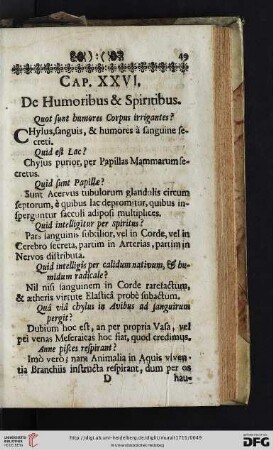 49
CAP. XXVI.
De Humoribus & Spiritibus.
Quot sunt humores Corpus irrigantes?
CHylus, sanguis, & humores à sanguine se-
creti.
Quid est Lac?
Chylus purior, per Papillas Mammarum se-
cretus.
Quid sunt Papillæ?
Sunt Acervus tubulorum glandulis circum
septorum, è quibus lac depromitur, quibus in-
sperguntur sacculi adiposi multiplices.
Quid intelligitur per spiritus?
Pars sanguinis subtilior, vel in Corde, vel in
Cerebro secreta, partim in Arterias, partim in
Nervos distributa.
Quid intelligis per calidum nativum, & hu-
midum radicale?
Nil nisi sanguinem in Corde rarefactum,
& ætheris virtute Elasticâ probè subactum.
Quâ viâ chylus in Avibus ad sanguinem
pergit?
Dubium hoc est, an per propria Vasa, vel
per venas Meseraicas hoc fiat, quod credimus.
Anne pisces respirant?
Imò verò; nam Animalia in Aquis viven-
tia Branchiis instructa respirant, dum per os
D hau-
UNIVERSITÄTS-
BIBLIOTHEK
HEIDELBERG
http://digi.ub.uni-heidelberg.de/diglit/muralt1715/0049
© Universitätsbibliothek Heidelberg
gefördert durch die
DFG